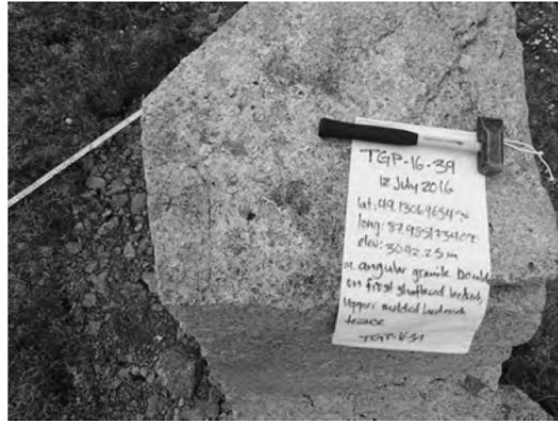 TGP-16-39
12 July 2016
lat: 49.13069654°N
long: 87.98517340°E
elev: 3092.25 m
angular granite boulder
on frost shattered bedrock,
upper molded bedrock
terrace
TGP-16-39